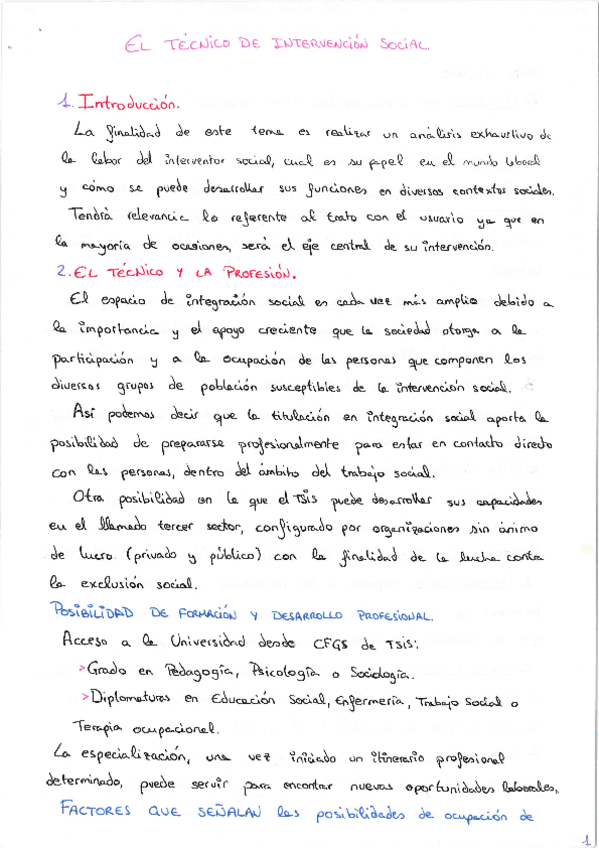 EL TÉCNICO DE INTERVENCIÓN SOCIAL.
1. Introducción.
La finalidad de este tema es realizar un análisis exhaustivo de
la labor del interventor social, cual es su papel en el mundo laboral
y cómo se puede desarrollar sus funciones en diversos contextos sociales.
Tendrá relevancia lo referente al trato con el usuario ya que en
la mayoría de ocasiones, será el eje central de su intervención.
2. EL TÉCNICO Y LA PROFESIÓN.
El espacio de integración social es cada vez más amplio debido a
la importancia y el apoyo creciente que la sociedad otorga a la
participación y a la ocupación de las personas que componen los
diversos grupos de población susceptibles de la intervención social.
Así podemos decir que la titulación en integración social aporta la
posibilidad de prepararse profesionalmente para estar en contacto directo
con las personas, dentro del ámbito del trabajo social.
Otra posibilidad en la que el TSIS puede desarrollar sus capacidades
en el llamado tercer sector, configurado por organizaciones sin ánimo
de lucro (privado y público) con la finalidad de la lucha contra
la exclusión social.
POSIBILIDAD DE FORMACIÓN Y DESARROLLO PROFESIONAL.
Acceso a la Universidad desde CFGS de TSIS:
>Grado en Pedagogía, Psicología o Sociología.
>Diplomaturas en Educación Social, Enfermería, Trabajo Social o
Terapia ocupacional.
La especialización, una vez iniciado un itinerario profesional
determinado, puede servir para encontrar nuevas oportunidades laborales,
FACTORES QUE SEÑALAN las posibilidades de ocupación de
1